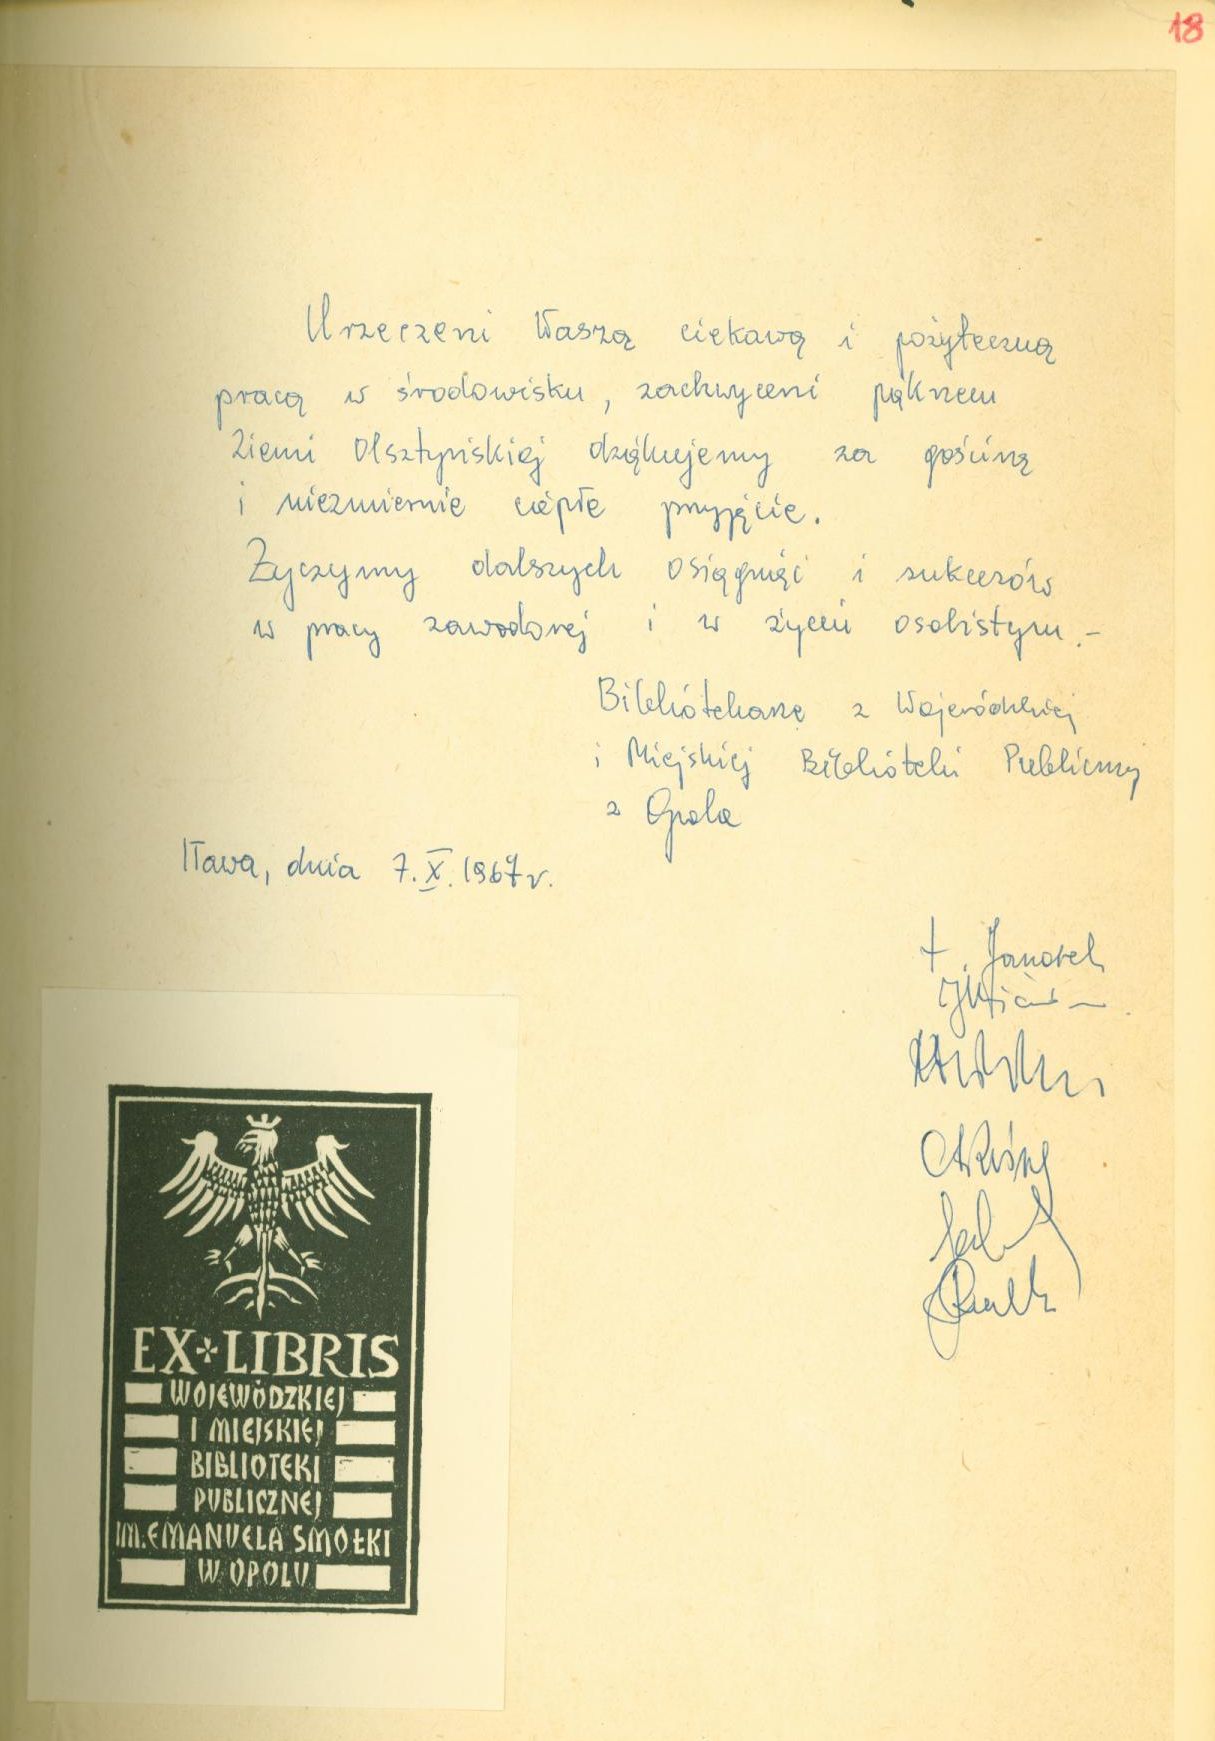 18
Urzeczeni Waszą ciekawą i pożyteczną
pracą w środowisku, zachwyceni pięknem
Ziemi Olsztyńskiej dziękujemy za gościnę
i niezmiernie ciepłe przyjęcie.
Życzymy dalszych osiągnięć i sukcesów
w pracy zawodowej i w życiu osobistym.-
Bibliotekarze z Wojewódzkiej
i Miejskiej Biblioteki Publicznej
z Opola
Iława, dnia 7.X.1967r.
EX LIBRIS
WOJEWÓDZKIEJ
I MIEJSKIEJ
BIBLIOTEKI
PUBLICZNEJ
IM. EMANUELA SMOŁKI
W OPOLU